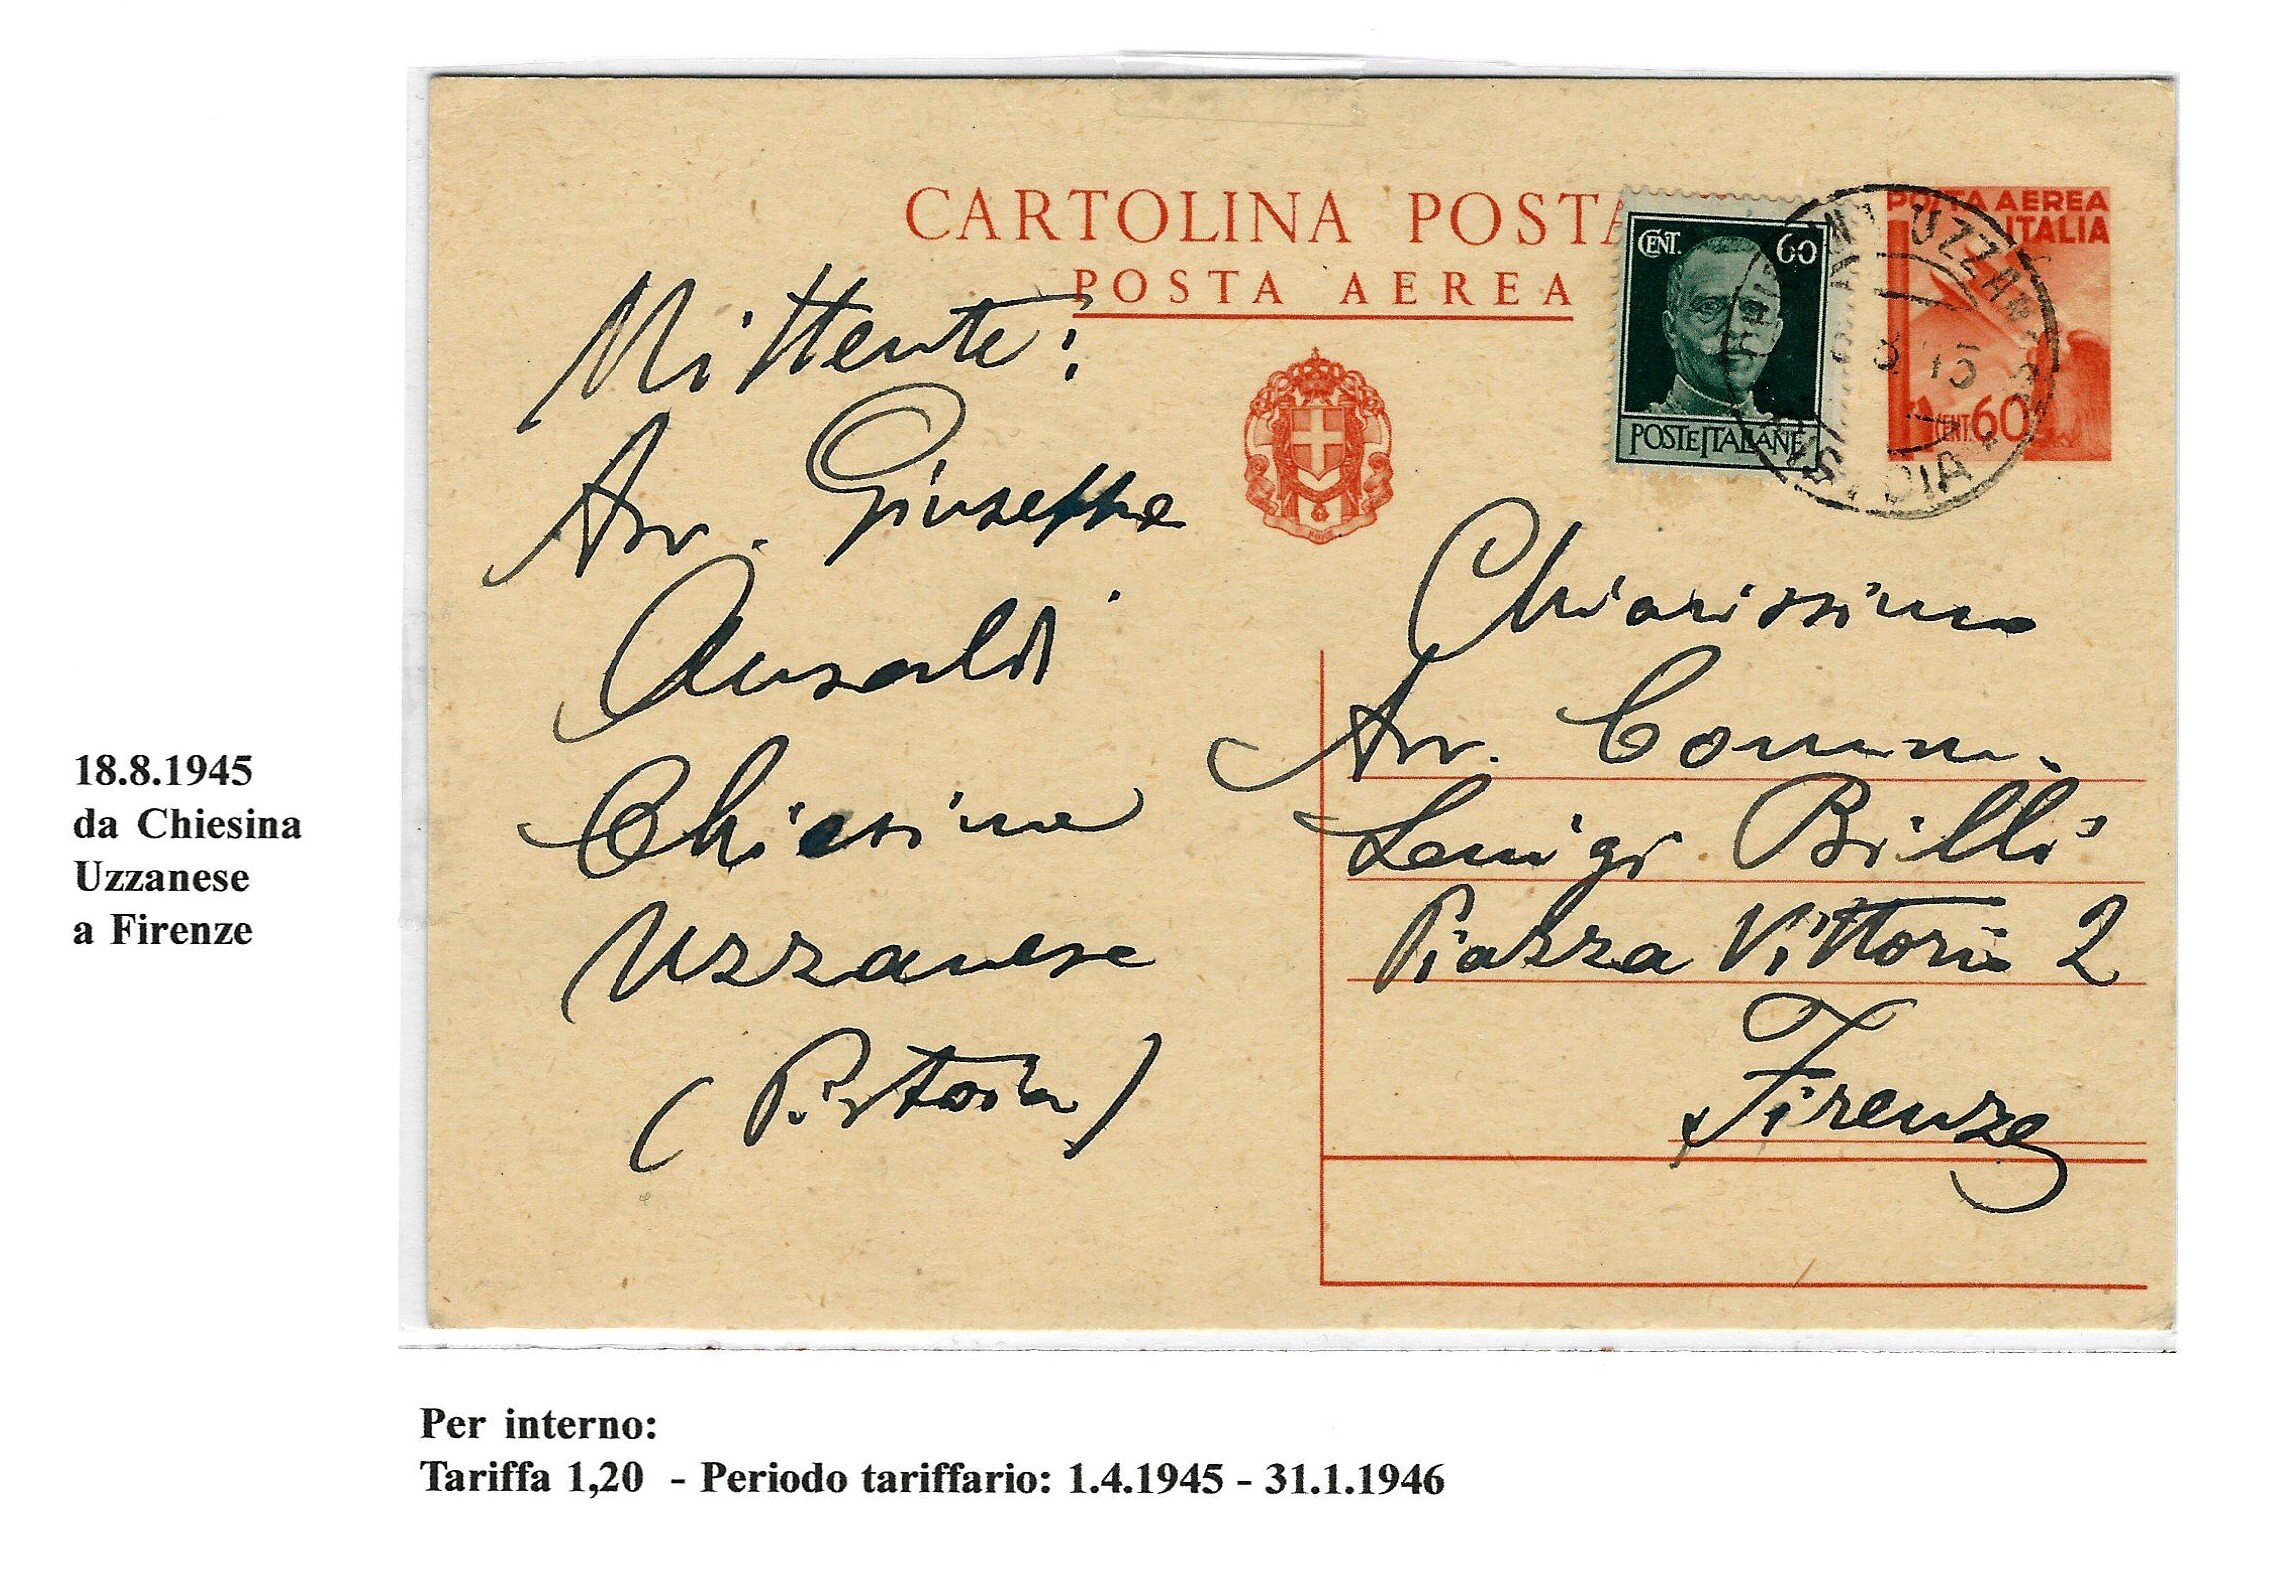 CARTOLINA POSTA
POSTA AEREA
CENT. 60
POSTE ITALIANE
POSTA AEREA
ITALIA
CENT. 60
Mittente:
Avv. Giuseppe
Ansaldi
Chiesina
Uzzanese
(Pistoia)
Chiarissimo
Avv. Comm.
Luigi Billi
Piazza Vittorio 2
Firenze
18.8.1945
da Chiesina
Uzzanese
a Firenze
Per interno:
Tariffa 1,20 - Periodo tariffario: 1.4.1945 - 31.1.1946